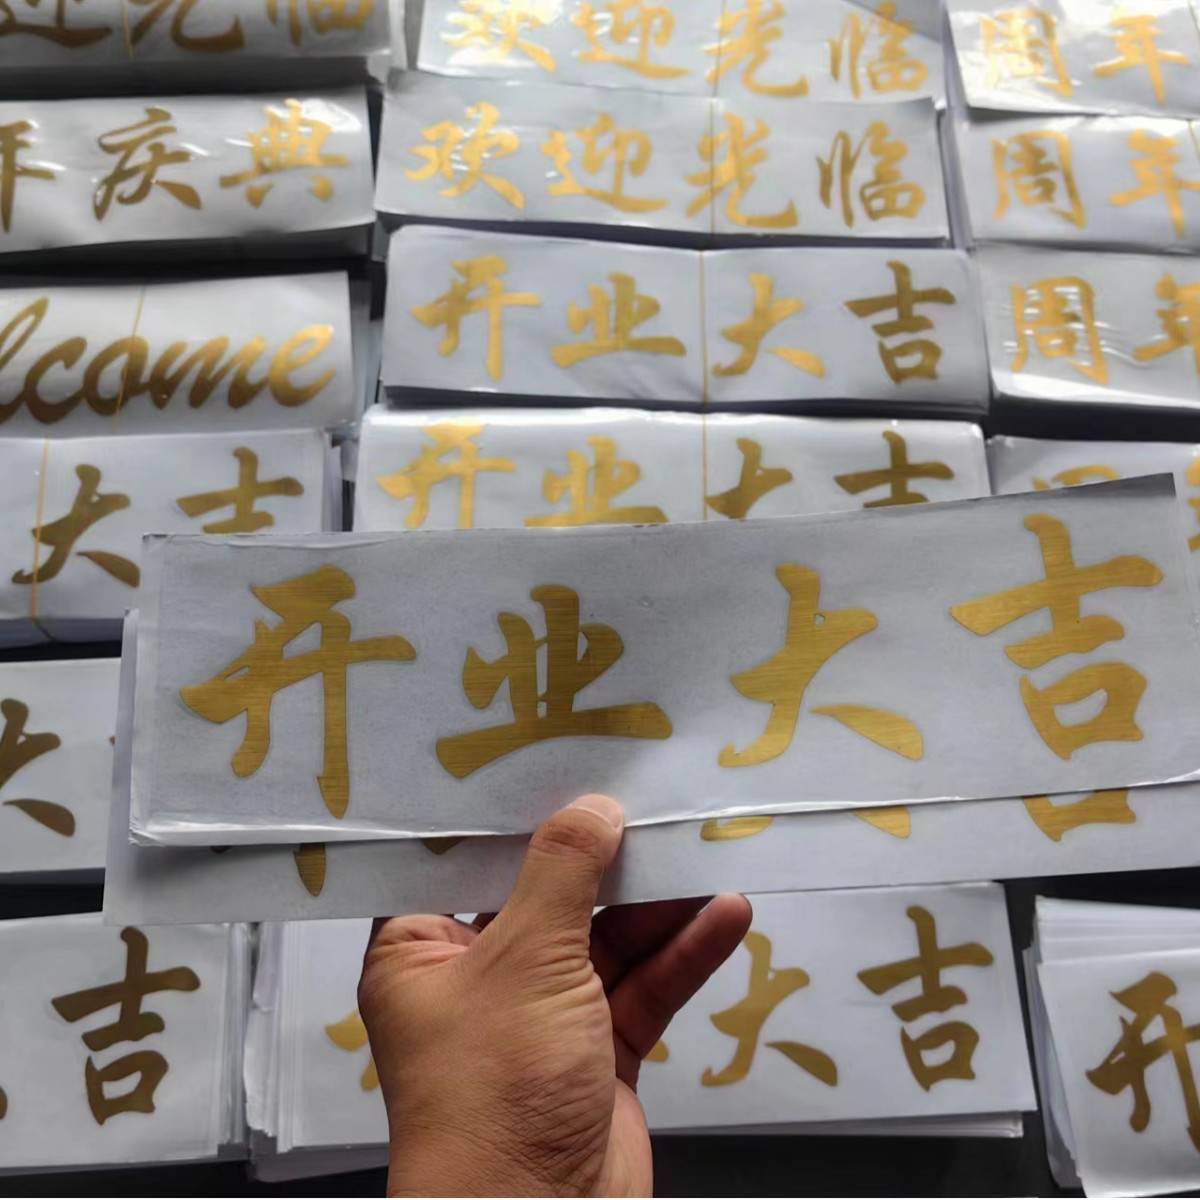 迎光临
欢迎光临
周年
年庆典
欢迎光临
周年
lcome
开业大吉
周年
大吉
开业大吉
开业大吉
大
吉
大吉
开